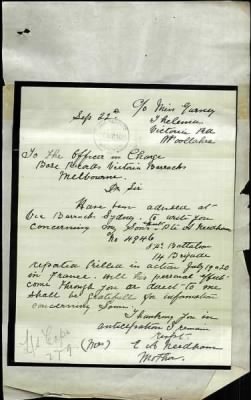 C/o Miss Gurney
Sept 22nd Thelema
Victoria Rd
Woollahra
To The Officer in Charge
Base Records Victoria Barracks
Melbourne
Dr Sir
Have been advised at
Vic Barracks Sydney to write you
concerning my Son Pte A Needham
No 4946
54 Battalion
14 Brigade
reported Killed in action July 19 & 20
in France. Will his personal effects
come through you or direct to me
shall be grateful for information
concerning Same.
Thanking you in
anticipation I remain
Respt
(Mrs) E A Needham
Mother